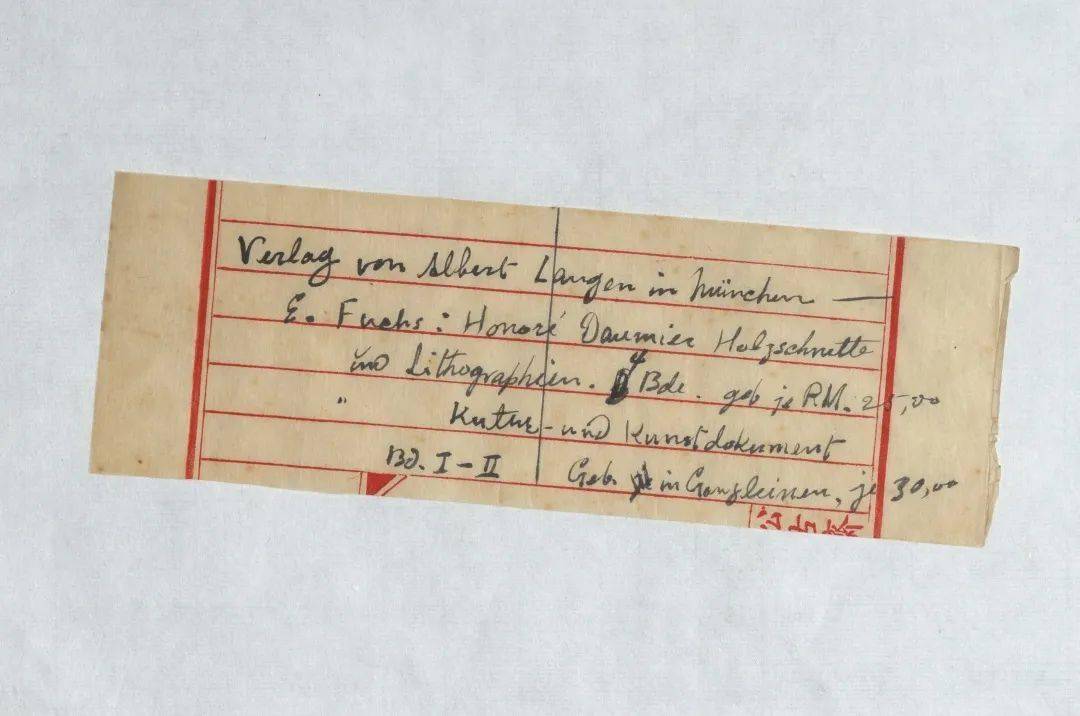 Verlag von Albert Langen in München —
E. Fuchs: Honoré Daumier Holzschnette
und Lithographieen. 4 Bde. geb je RM. 25,00
" Kutur- und Kunstdokument
Bd. I-II Geb. in Ganzleinen, je 30,00